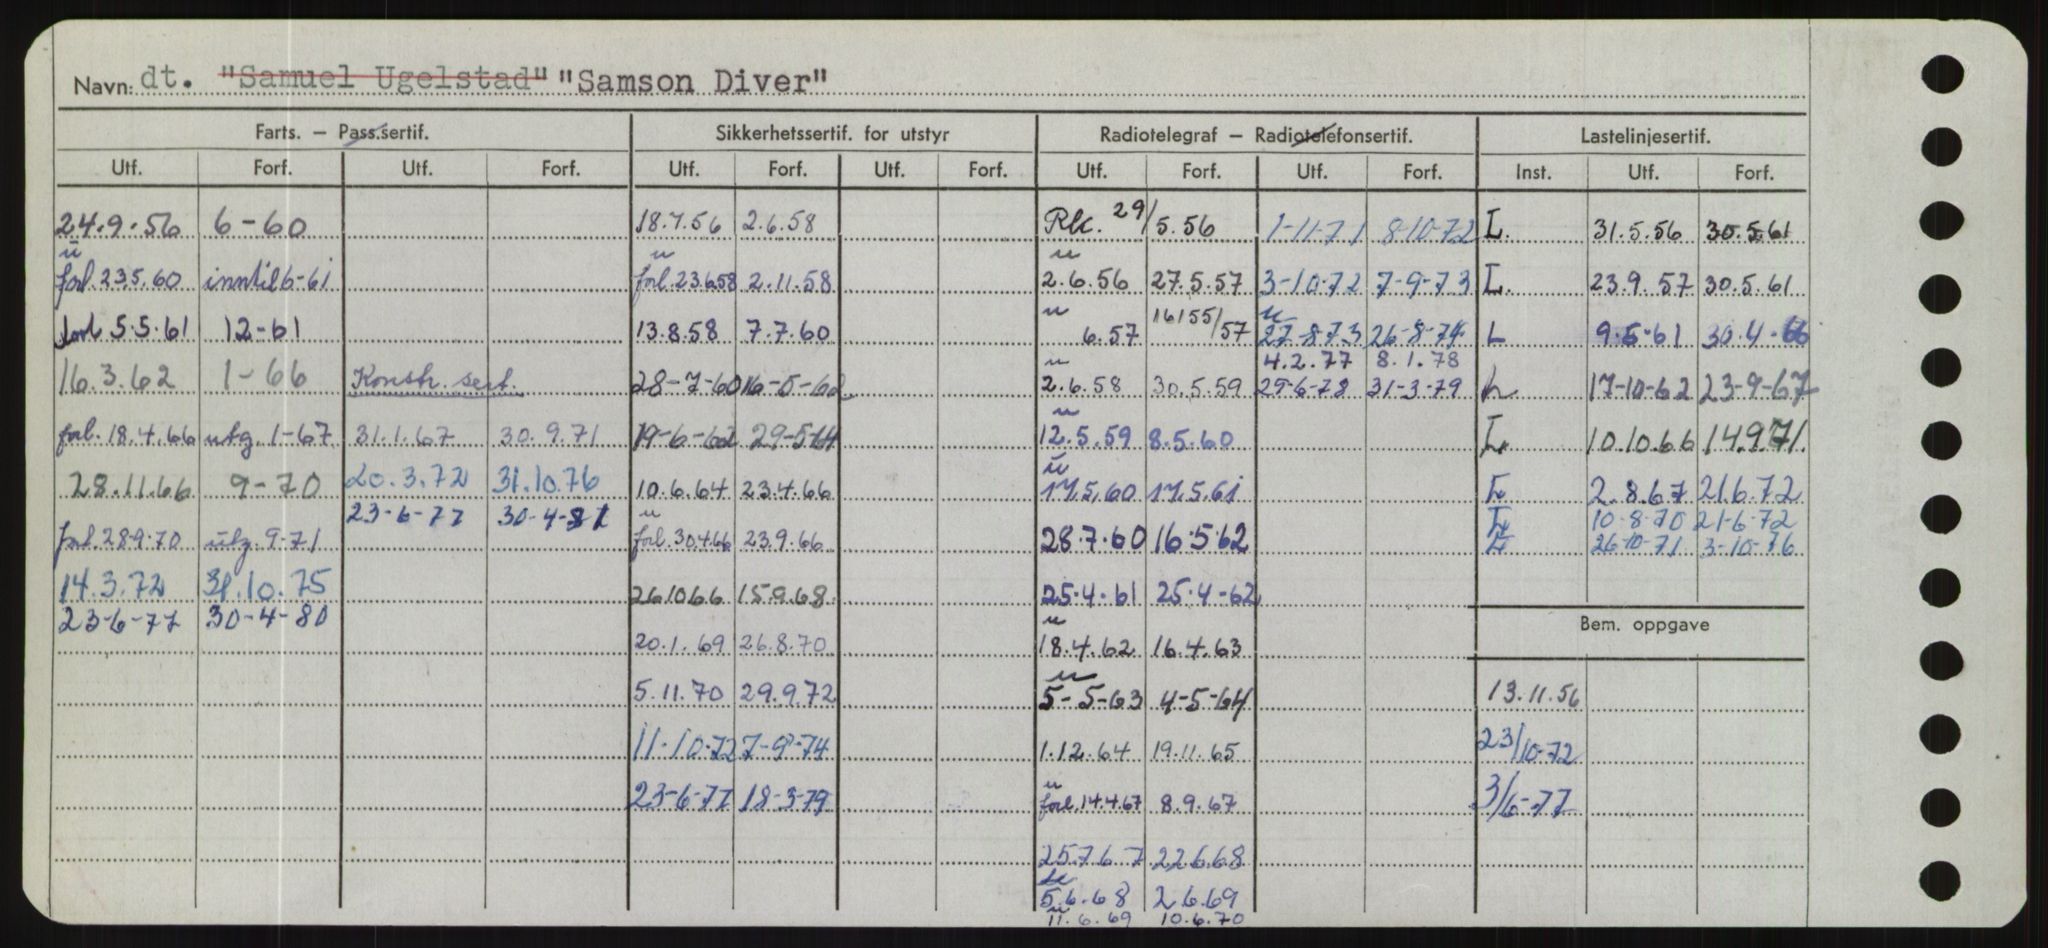 Navn: dt. "Samuel Ugelstad" "Samson Diver"
Farts. – Pass.sertif. Sikkerhetssertif. for utstyr Radiotelegraf – Radiotelefonsertif. Lastelinjesertif.
Utf. Forf. Utf. Forf. Utf. Forf. Utf. Forf. Utf. Forf. Utf. Forf. Inst. Utf. Forf.
24.9.56 6-60 18.7.56 2.6.58 29/5.56 1-11-71 8-10-72 L. 31.5.56 30.5.61
forl. 23.5.60 inntil 6-61 forl. 23.6.58 2.11.58 2.6.56 27.5.57 3-10-72 7-9-73 L. 23.9.57 30.5.61
forl 5.5.61 12-61 13.8.58 7.7.60 6.57 27-8-73 26-8-74 L 9.5-61 30.4-66
4.2.77 8.1.78
16.3.62 1-66 Konstr. sert. 28-7-60 2.6.58 30.5.59 29-6-78 31-3-79 L 17-10-62 23-9-67
forl. 18.4.66 utg. 1-67 31.1.67 30.9.71 19-6-62 29-5-64 12.5.59 8.5.60 L. 10.10.66 14.9.71.
28.11.66 9-70 20.3.72 31.10.76 10.6.64 23.4.66 17.5.60 17.5.61 L 2.8.67 21.6.72
23-6-77 30-4-81 L 10-8-70 21-6-72
forl. 28.9.70 utg. 9-71 forl. 30.4.66 23.9.66 28.7.60 16.5.62 L 26-10-71 3-10-76
14.3.72 31.10.75 26.10.66 15.9.68. 25.4.61 25.4-62
23-6-77 30-4-80
Bem. oppgave
20.1.69 26.8.70 18.4.62 16.4.63
5.11.70 29.9.72 5-5-63 4-5-64 13.11.56
11-10-72 7-9-74 1.12.64 19.11.65 23/10-72
23-6-77 18-3-79 forl. 14.4.67 8.9.67 3/6-77
25.7.67 22.6.68
5.6.68 2.6.69
11.6.69 10.6.70